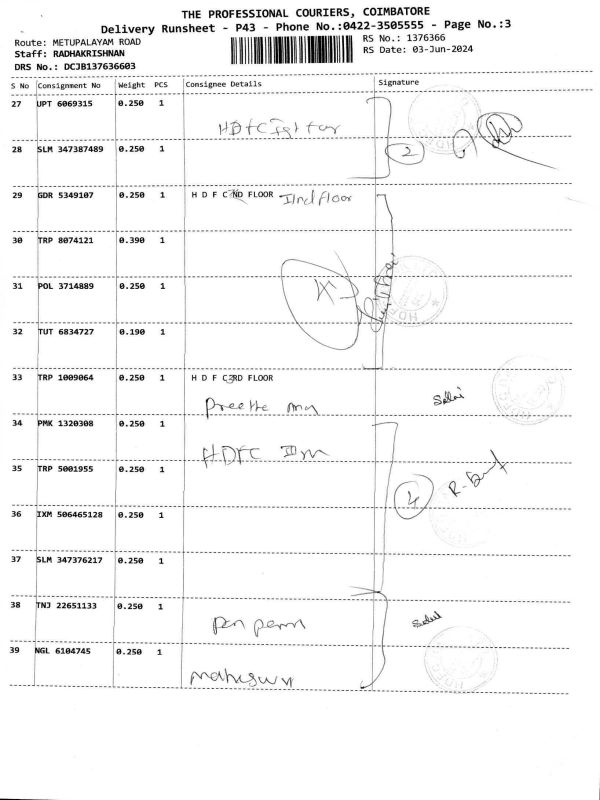 THE PROFESSIONAL COURIERS, COIMBATORE
Delivery Runsheet - P43 - Phone No.:0422-3505555 - Page No.:3
Route: METUPALAYAM ROAD
RS No.: 1376366
Staff: RADHAKRISHNAN
RS Date: 03-Jun-2024
DRS No.: DCJB137636603
S No Consignment No Weight PCS Consignee Details Signature
27 UPT 6069315 0.250 1
HDFC
28 SLM 347387489 0.250 1 2
29 GDR 5349107 0.250 1 H D F C ND FLOOR IInd floor
30 TRP 8074121 0.390 1
31 POL 3714889 0.250 1
32 TUT 6834727 0.190 1
33 TRP 1009064 0.250 1 H D F C 3RD FLOOR
34 PMK 1320308 0.250 1
HDFC
35 TRP 5001955 0.250 1
4
36 IXM 506465128 0.250 1
37 SLM 347376217 0.250 1
38 TNJ 22651133 0.250 1
39 NGL 6104745 0.250 1